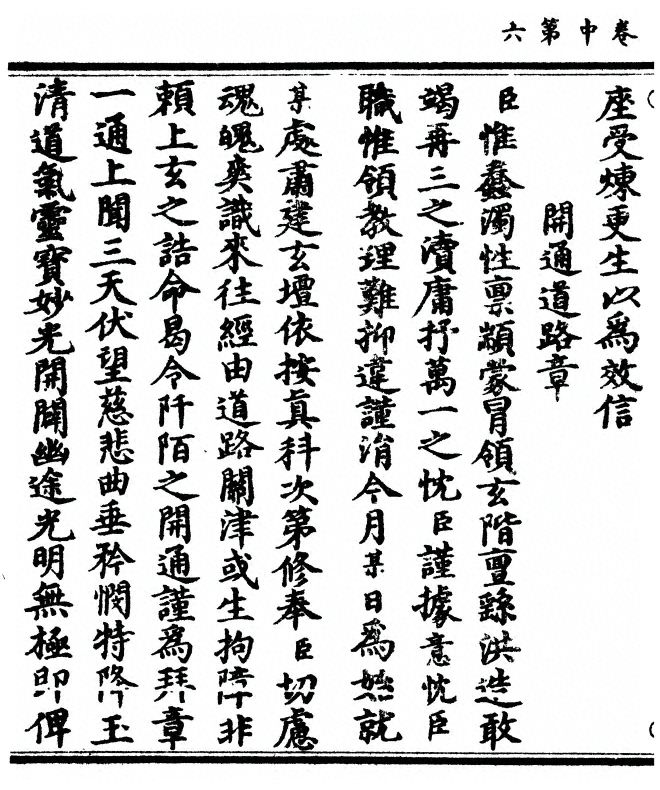 卷中第六
座受煉更生以為效信
開通道路章
臣惟蠢濁性禀顓蒙冒領玄階亶繇洪造敢
竭再三之瀆庸抒萬一之忱臣謹據意忱臣
職惟領教理難抑違謹涓今月某日為始就
某處肅建玄壇依按真科次第修奉臣切慮
魂魄爽識來往經由道路關津或生拘障非
頼上玄之誥命曷令阡陌之開通謹為拜章
一通上聞三天伏望慈悲曲垂矜憫特降玉
清道氣靈寶妙光開闢幽途光明無極即俾